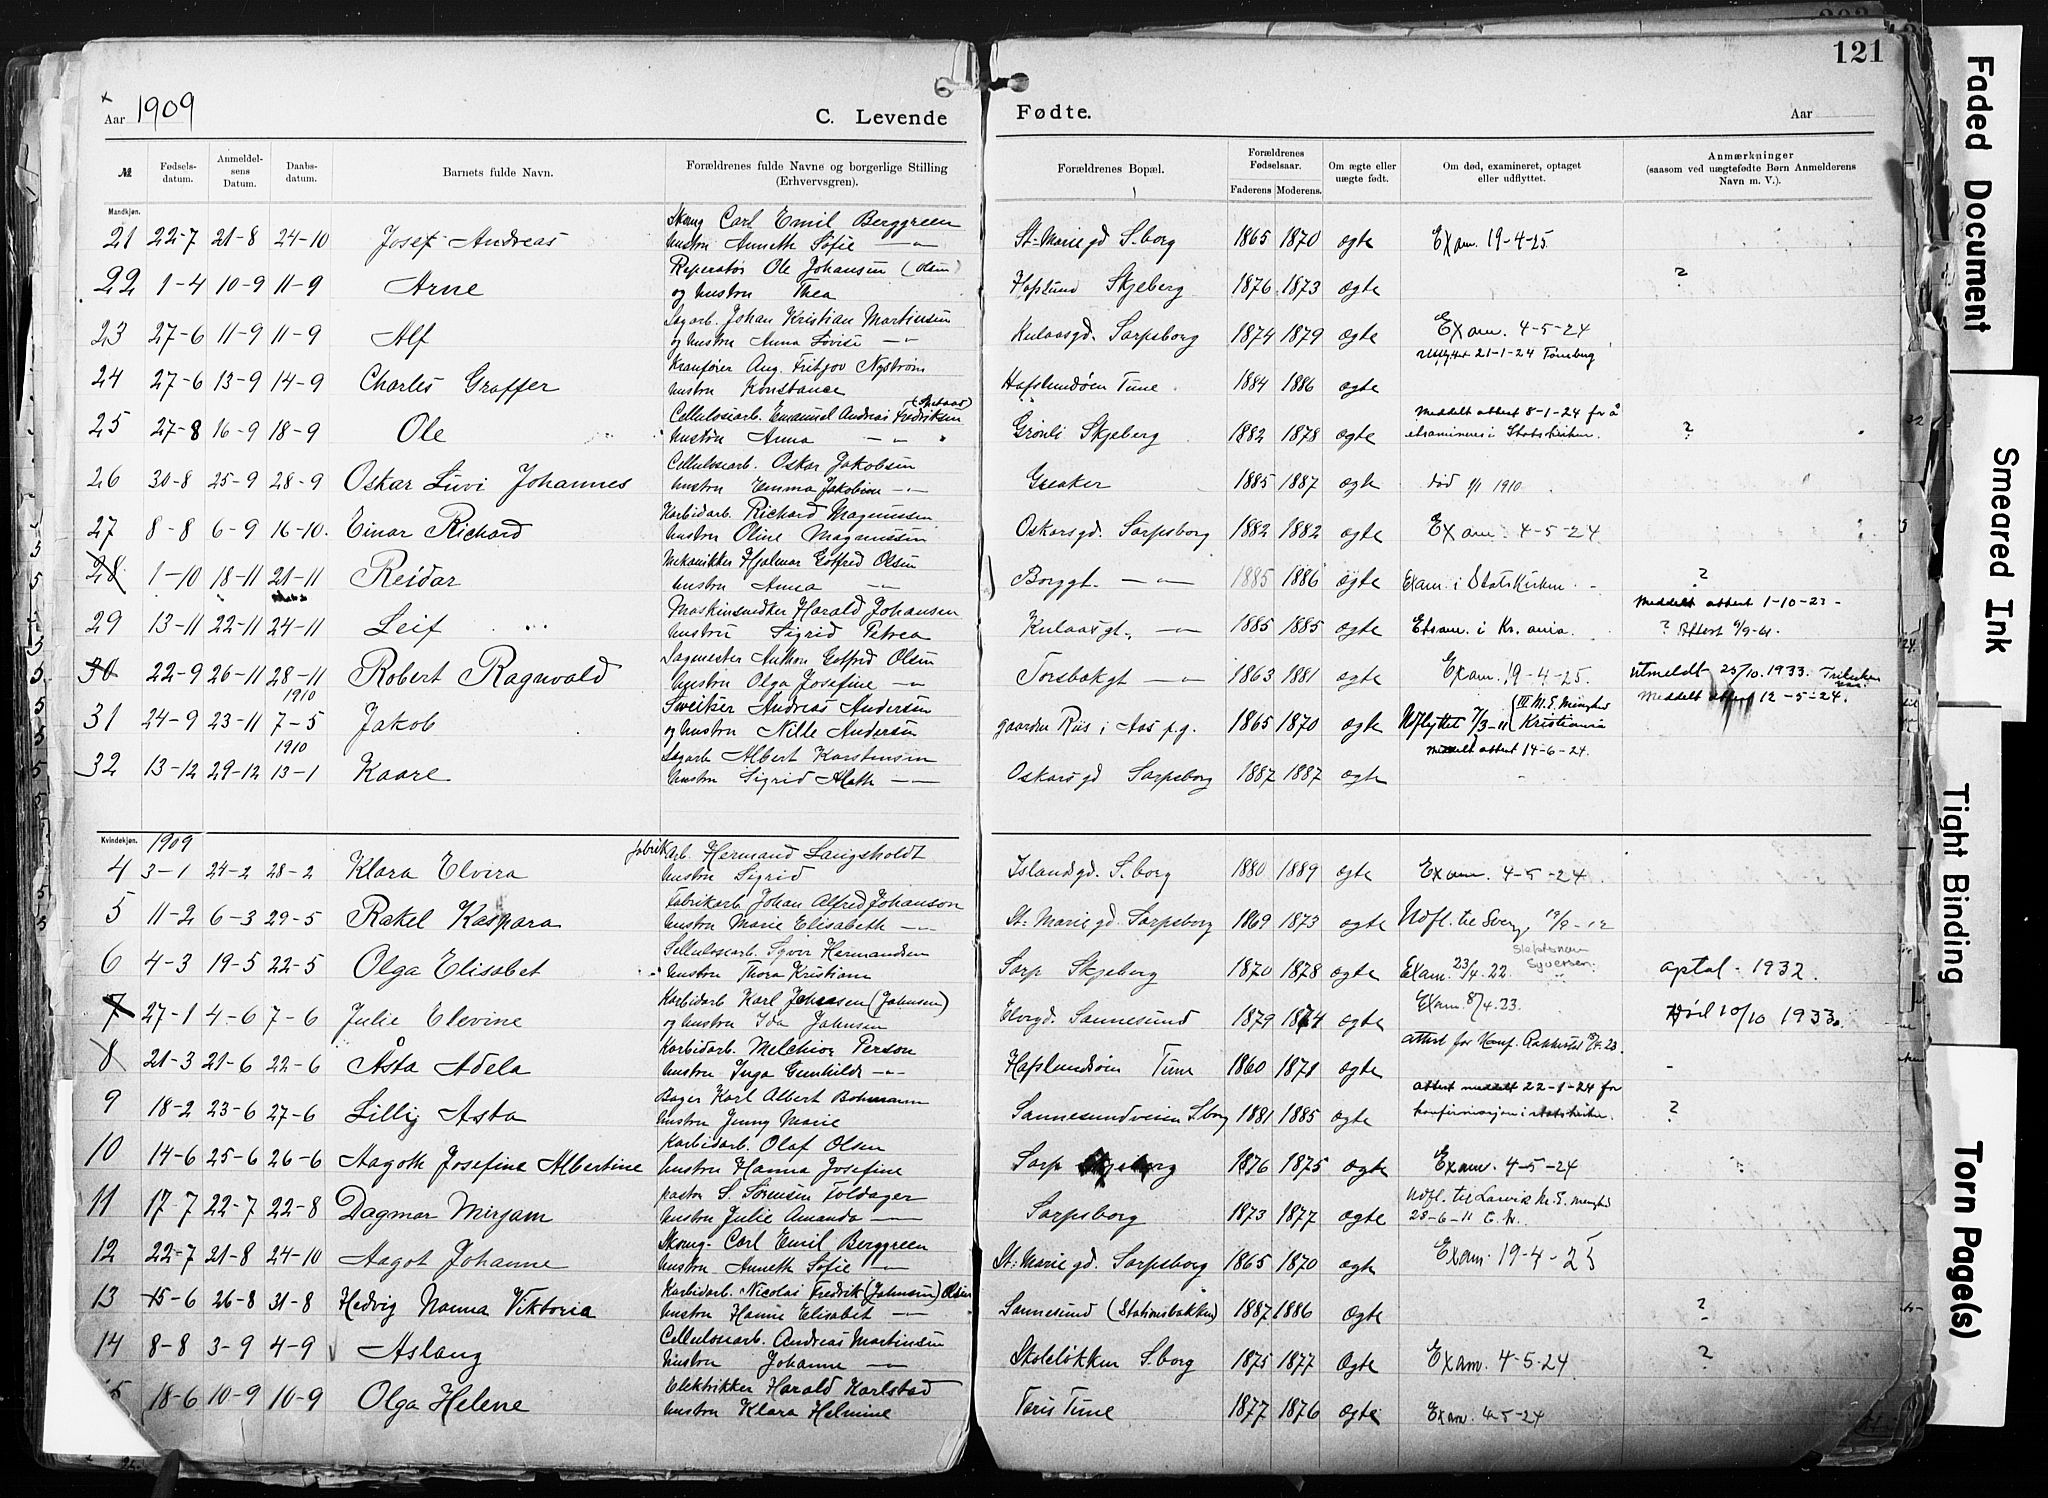 121
Aar 1909
C. Levende Fødte.
Aar
№ Fødsels-datum. Anmeldel-sens Datum. Daabs-datum. Barnets fulde Navn. Forældrenes fulde Navne og borgerlige Stilling (Erhvervsgren). Forældrenes Bopæl. Forældrenes Fødselsaar. Faderens Moderens. Om ægte eller uægte født. Om død, examineret, optaget eller udflyttet. Anmærkninger (saasom ved uægtefødte Børn Anmelderens Navn m. V.).
Mandkjøn.
Carl Emil Berggreen
21 22-7 21-8 24-10 Josef Andreas hustru Anneth Sofie St. Marie gd S.borg 1865 1870 ægte Exam. 19-4-25.
Reperatør Ole Johansen (Olsen)
22 1-4 10-9 11-9 Arne og hustru Thea Hafslund Skjeberg 1876 1873 ægte ?
Sagarb. Johan Kristian Martinsen
23 27-6 11-9 11-9 Alf og hustru Anna Lovise Kulaasgd. Sarpsborg 1874 1879 ægte Exam. 4-5-24
Kranfører Aug. Fritjov Nystrøm Utflyttet 21-1-24 Tønsberg
24 27-6 13-9 14-9 Charles Graffer hustru Konstance Hafslundøen Tune 1884 1886 ægte
Cellulosearb. Emanuel Andreas Fredriksen Meddelt attest 8-1-24 for å
25 27-8 16-9 18-9 Ole hustru Anna Grønli Skjeberg 1882 1878 ægte eksamineres i Statskirken. ?
Cellulosearb. Oskar Jakobsen
26 30-8 25-9 28-9 Oskar Luvi Johannes hustru Emma Jakobine Greaker 1885 1887 ægte død 1/1 1910
Karbidarb. Richard Magnussen
27 8-8 6-9 16-10. Einar Richard hustru Oline Magnussen Oskarsgd. Sarpsborg 1882 1882 ægte Exam. 4-5-24
Mekanikker Hjalmar Gotfred Olsen
28 1-10 18-11 21-11 Reidar hustru Anna Borggt. 1885 1886 ægte Exam. i Statskirken ?
Maskinsmedker Harald Johansen Meddelt attest 1-10-23
29 13-11 22-11 24-11 Leif hustru Sigrid Petrea Kulaasgt. 1885 1885 ægte Eksam. i Kr.ania. ? Attest 6/9-61
Sagmester Anthon Gotfred Olsen
30 22-9 26-11 28-11 Robert Ragnvald hustru Olga Josefine Torsbakgt 1863 1881 ægte Exam. 19-4-25. utmeldt 25/10. 1933.
1910 Sveitser Andreas Andersen III M.E. Menighed Meddelt attest 12-5-24.
31 24-9 23-11 7-5 Jakob og hustru Nille Andersen gaarden Riis i Aas p.g. 1865 1870 ægte Udflyttet 7/3-11 Kristiania
1910 Sagarb Albert Karstensen Meddelt attest 14-6-24.
32 13-12 29-12 13-1 Kaare hustru Sigrid Oskarsgd Sarpsborg 1887 1887 ægte
Kvindekjøn. 1909
fabrikarb. Hermand Langsholdt
4 3-1 24-2 28-2 Klara Elvira hustru Sigrid Islandsgd. S.borg 1880 1889 ægte Exam. 4-5-24.
Fabrikarb. Johan Alfred Johanson
5 11-2 6-3 29-5 Rakel Kaspara hustru Marie Elisabeth St. Marie gd. Sarpsborg 1869 1873 ægte Udfl. til Sverg.
Cellulosearb. Syver Hermandsen Slektsnavn Syversen
6 4-3 19-5 22-5 Olga Elisabet hustru Thora Kristiane Sarp Skjeberg 1870 1878 ægte Exam. 23/4. 22. 1932.
Karbidarb Karl Johnsen (Johnsen)
7 27-1 4-6 7-6 Julie Elevine og hustru Ida Johnsen Sannesund 1879 1874 ægte Exam. 8/4.23. 10/10 1933.
Karbidarb. Melchior Person attest for Konf.
8 21-3 21-6 22-6 Åsta Adela hustru Inga Gunhilde Hafslundsøen Tune 1860 1871 ægte -
Bager Karl Albert Bohmann attest meddelt 22-1-24 for
9 18-2 23-6 27-6 Lilly Asta hustru Jenny Marie Sannesundveien S.borg 1881 1885 ægte konfirmasjon i statskirken. ?
Karbidarb. Olaf Olsen
10 14-6 25-6 26-6 Aagoth Josefine Albertine hustru Hanna Josefine Sarp Skjeberg 1876 1875 ægte Exam. 4-5-24
pastor S. Sørensen Toldager Udfl. til Larvik M.E. menighed
11 17-7 22-7 22-8 Dagmar Mirjam hustru Julie Amanda Sarpsborg 1873 1877 ægte 28-6-11
Carl Emil Berggreen
12 22-7 21-8 24-10 Aagot Johanne hustru Anneth Sofie St. Marie gd. Sarpsborg 1865 1870 ægte Exam. 19-4-25
Karbidarb. Nicolai Fredrik (Johnsen) Olsen
13 15-6 26-8 31-8 Hedvig Nanna Viktoria hustru Hanne Elisabet Sannesund (Stationsbakken) 1887 1886 ægte ?
Cellulosearb. Andreas Martinsen
14 8-8 3-9 4-9 Aslaug hustru Johanne Skoleløkken S.borg 1875 1877 ægte Exam. 4-5-24 ?
Elektrikker Harald Karlstad
15 18-6 10-9 10-9 Olga Helene hustru Klara Helmine Tune 1877 1876 ægte Exam. 4-5-24
Faded Document
Smeared Ink
Tight Binding
Torn Page(s)